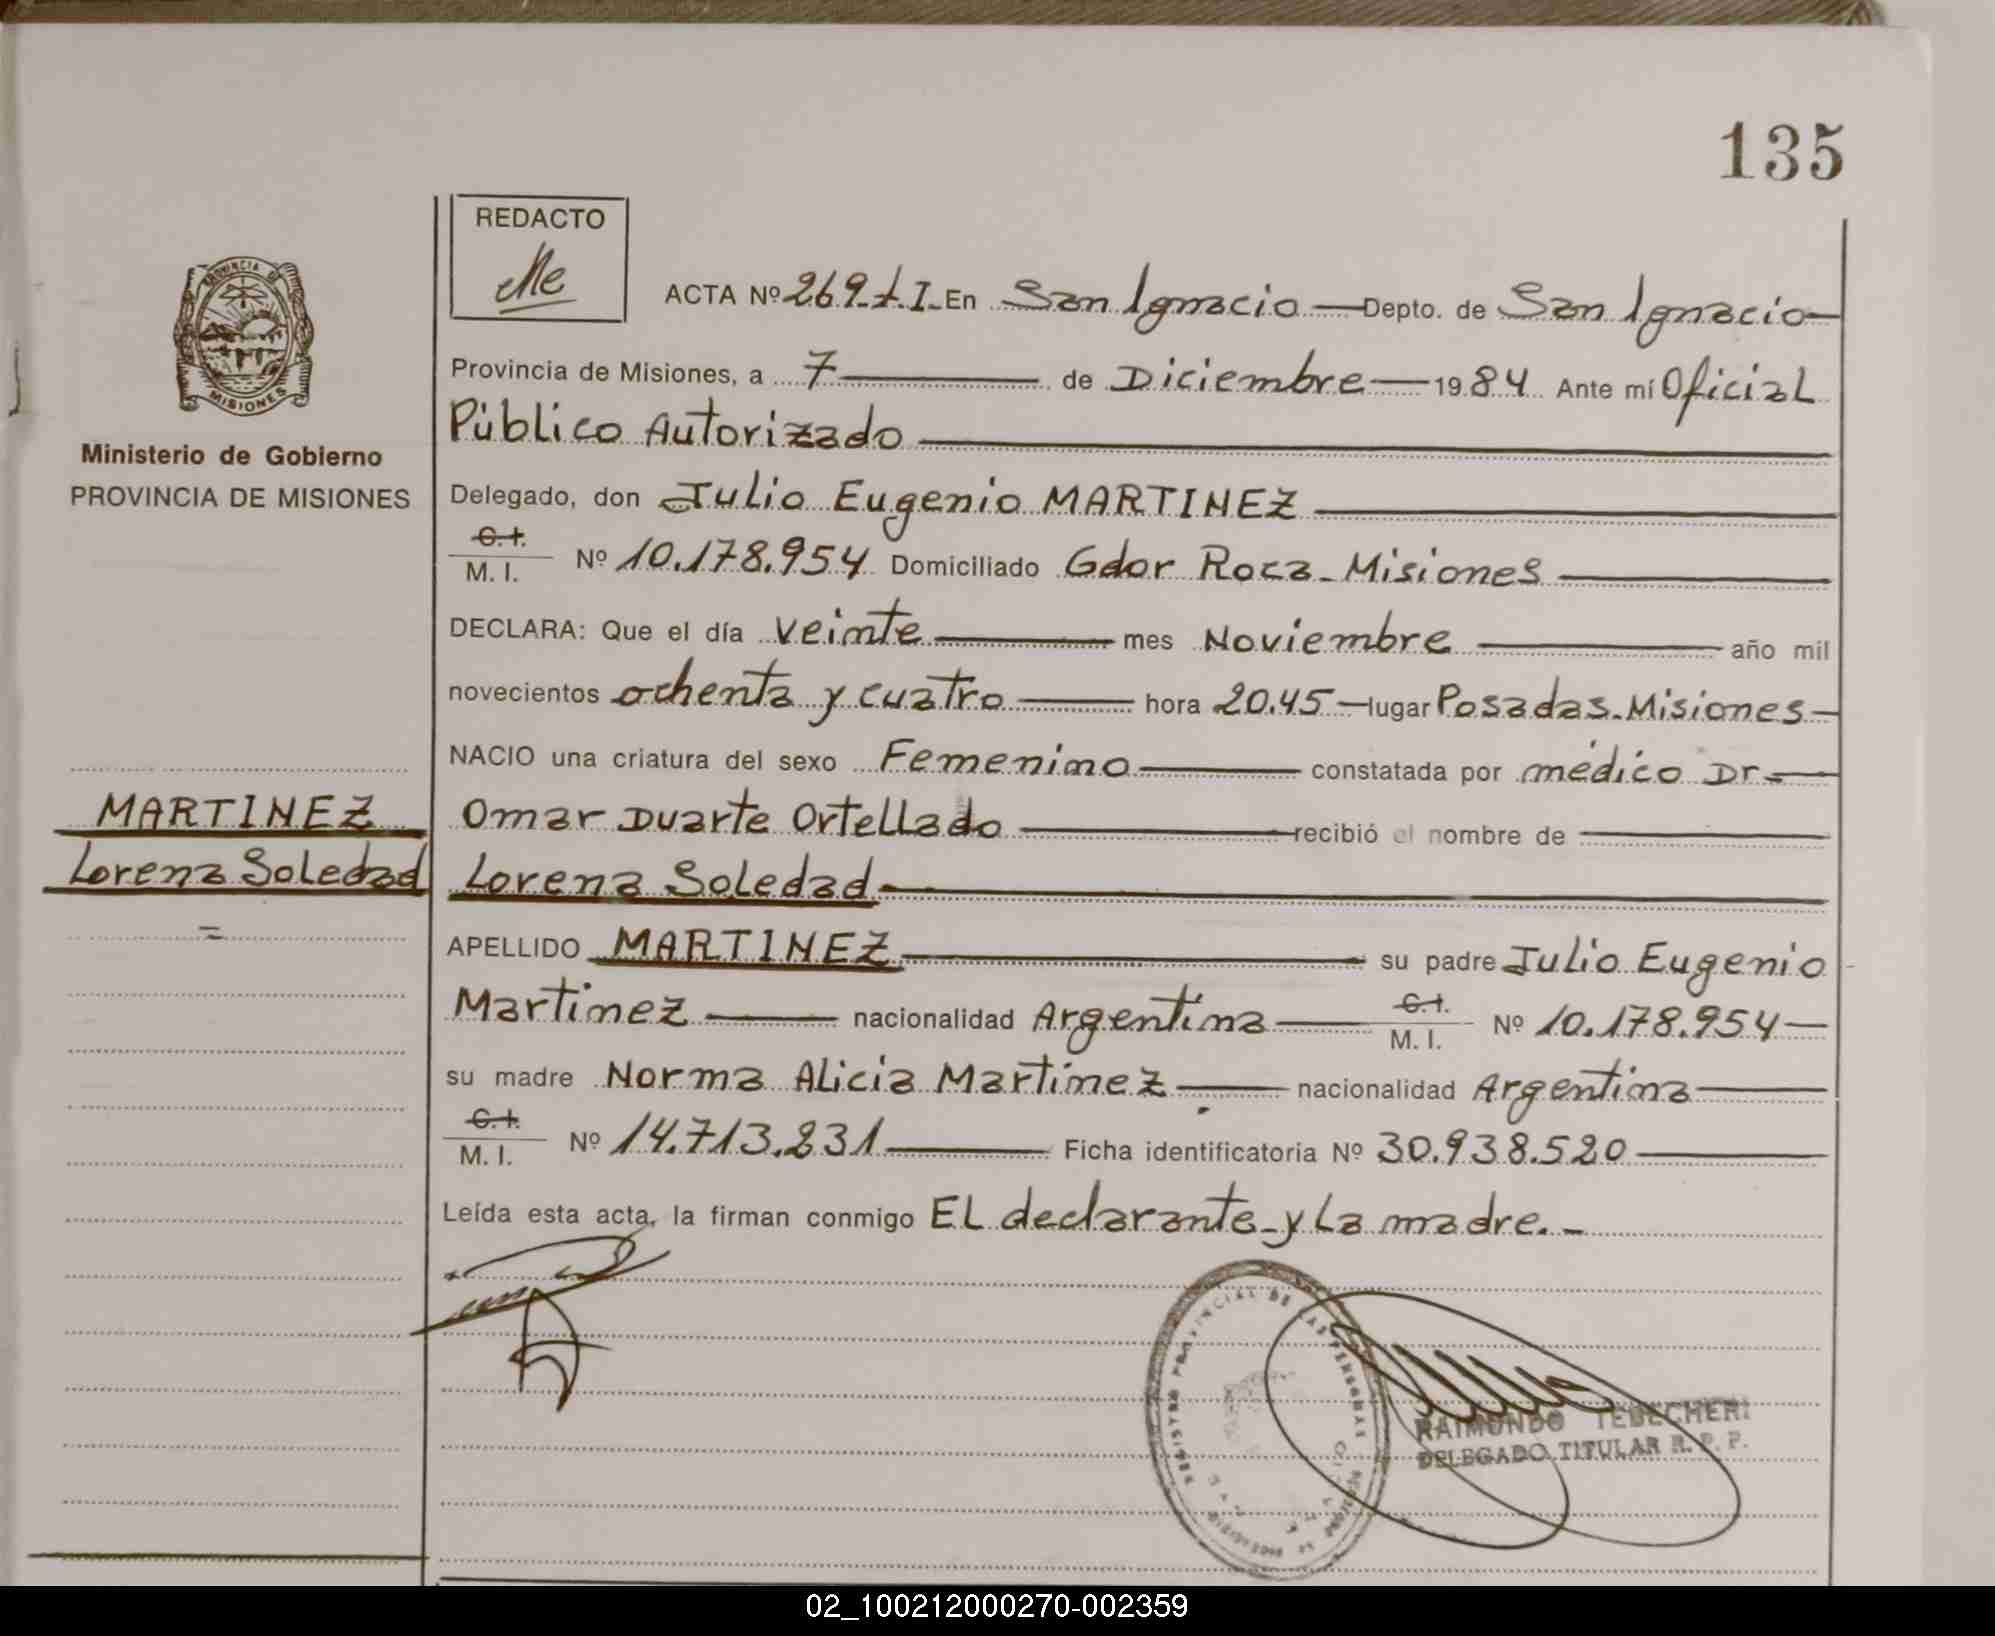 135
REDACTO
Me
ACTA Nº 269-t.I- En San Ignacio — Depto. de San Ignacio —
PROVINCIA DE
MISIONES
Provincia de Misiones, a 7 — de Diciembre — 1984 Ante mí Oficial
Público Autorizado —
Ministerio de Gobierno
PROVINCIA DE MISIONES
Delegado, don Julio Eugenio MARTINEZ —
C.I.
M. I. Nº 10.178.954 Domiciliado Gdor Roca - Misiones —
DECLARA: Que el día veinte — mes Noviembre — año mil
novecientos ochenta y cuatro — hora 20.45 — lugar Posadas - Misiones —
NACIO una criatura del sexo Femenino — constatada por médico Dr —
Omar Duarte Ortellado — recibió el nombre de —
Lorena Soledad —
MARTINEZ
Lorena Soledad
=
APELLIDO MARTINEZ — su padre Julio Eugenio
Martinez — nacionalidad Argentina — C.I.
M. I. Nº 10.178.954 —
su madre Norma Alicia Martínez — nacionalidad Argentina —
C.I.
M. I. Nº 14.713.231 — Ficha identificatoria Nº 30.938.520 —
Leída esta acta, la firman conmigo EL declarante - y La madre. -
REGISTRO PROVINCIAL DE LAS PERSONAS
RAIMUNDO TEBECHERI
DELEGADO TITULAR R. P. P.
02_100212000270-002359